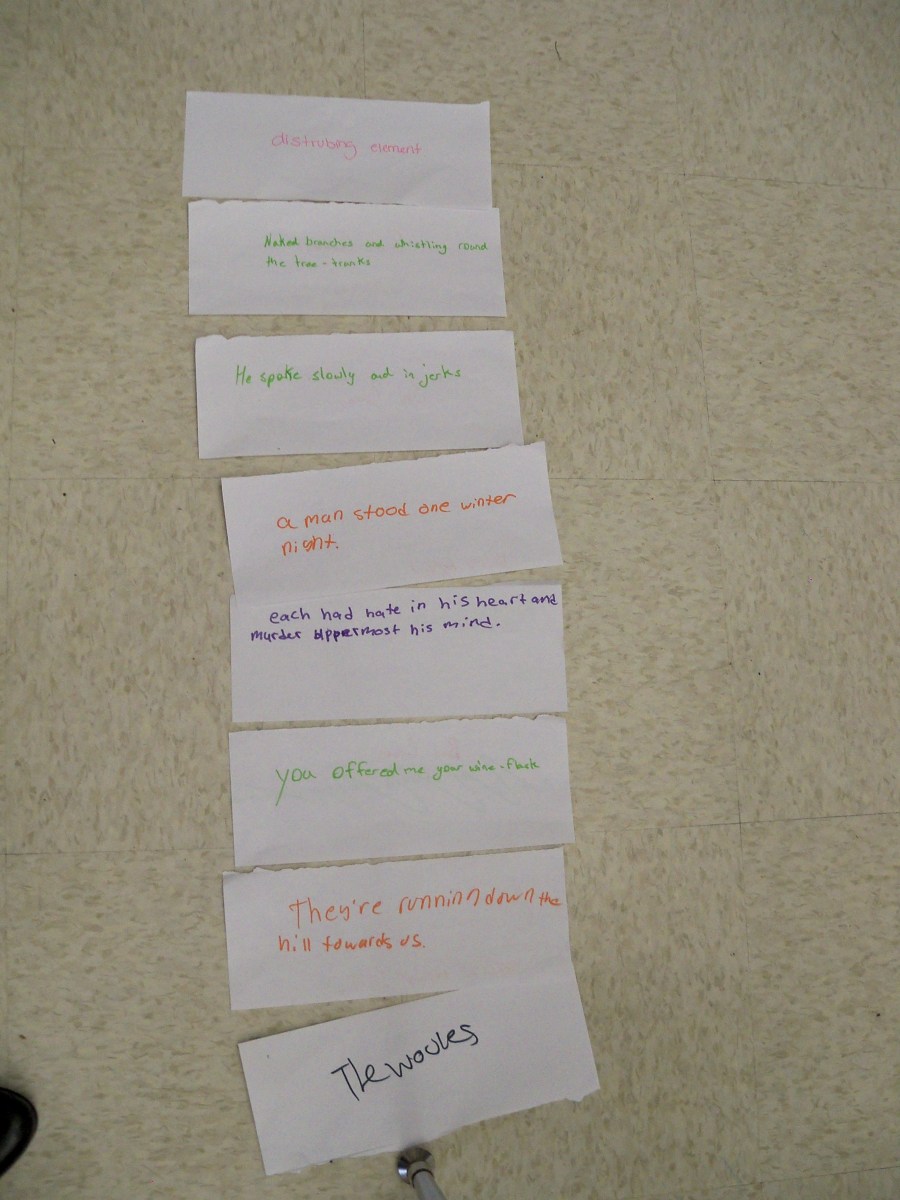 distrubeng element
Naked branches and whistling round
the tree-trunks
He spoke slowly and in jerks
a man stood one winter
night.
each had hate in his heart and
murder uppermost his mind.
you offered me your wine-flask
They're running down the
hill towards us.
The woules